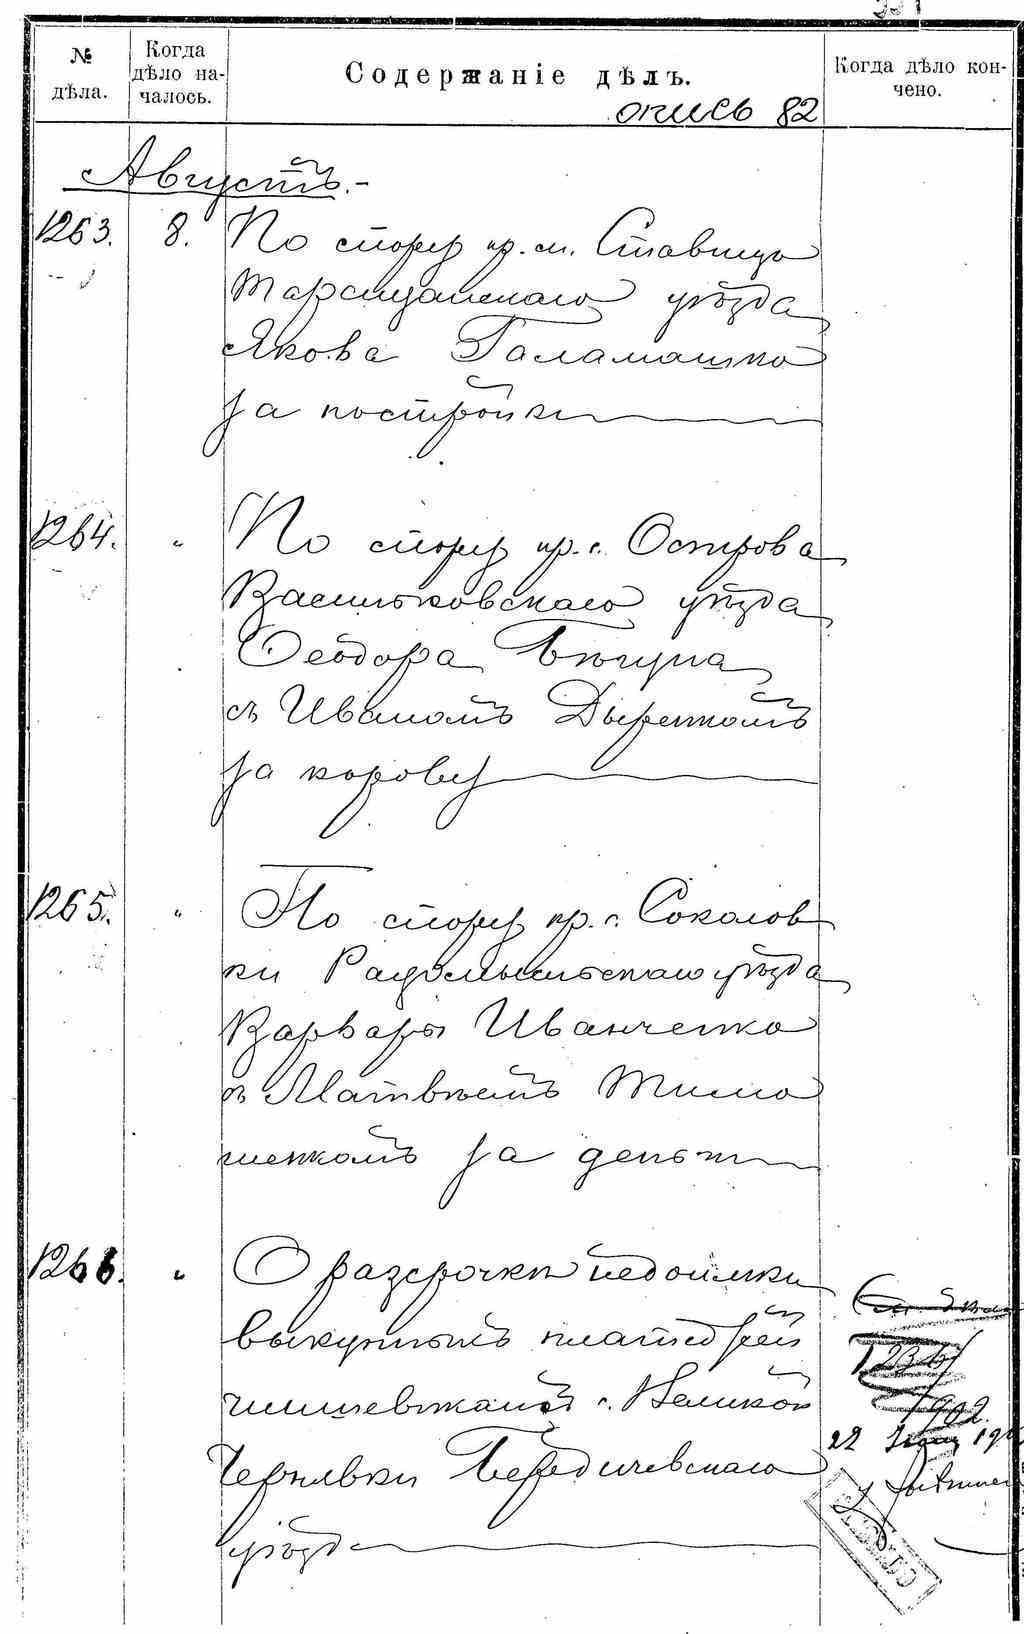 № дѣла.
Когда дѣло на-
чалось.
Содержаніе дѣлъ.
Когда дѣло кон-
чено.
опись 82
Августъ.-
1263. 8. По спору кр. м. Ставищъ
Таращанскаго уѣзда
Якова Галамашко
за постройки
1264. " По спору кр. с. Острова
Васильковскаго уѣзда
Ѳеодора Бѣгуна
съ Иваномъ Дыренкомъ
за корову
1265. " По спору кр. с. Соколов
ки Радомысльскаго уѣзда
Варвары Иванченко
съ Матвѣемъ Тимо
шенкомъ за деньги
1266. " О разсрочкѣ недоимки
выкупныхъ платежей
чиншевикамъ с. Великой
Чернявки Бердичевскаго
уѣзда
1902.
22